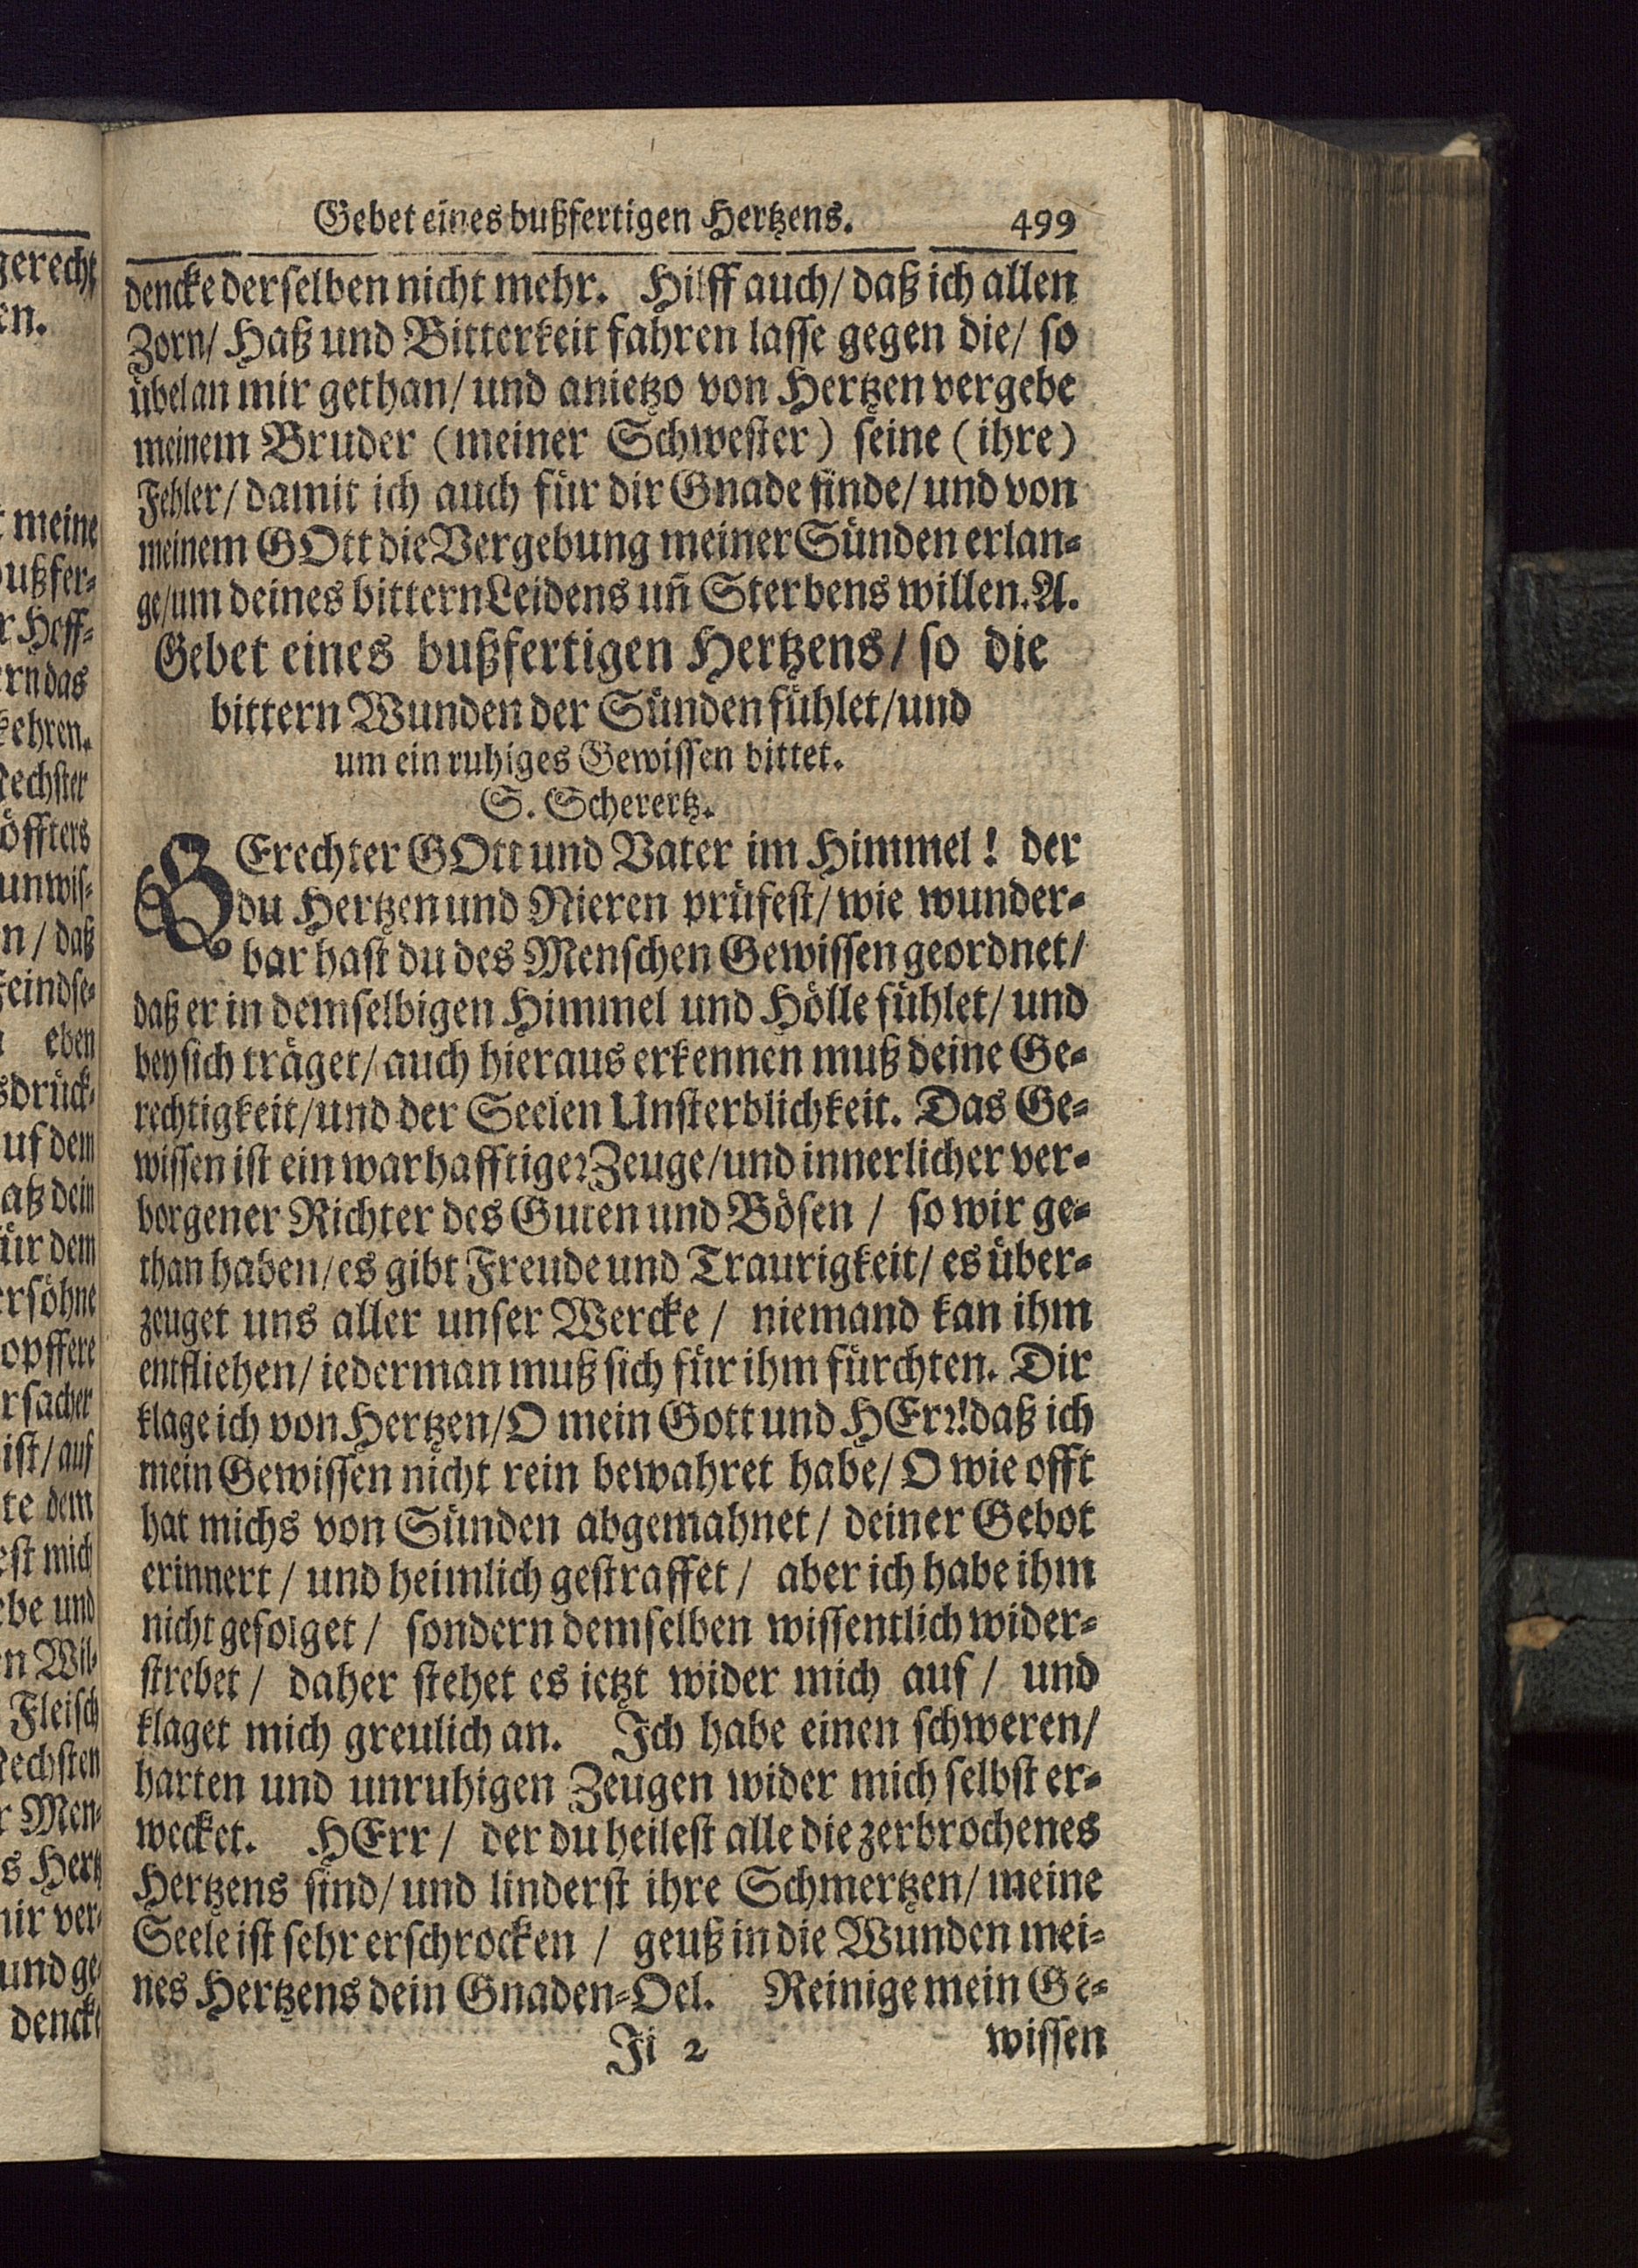 Gebet eines bußfertigen Hertzens. 499
dencke derselben nicht mehr. Hilff auch/ daß ich allen
Zorn/ Haß und Bitterkeit fahren lasse gegen die/ so
übel an mir gethan/ und anietzo von Hertzen vergebe
meinem Bruder (meiner Schwester) seine (ihre)
Fehler/ damit ich auch für dir Gnade finde/ und von
meinem GOtt die Vergebung meiner Sünden erlan-
ge/ um deines bittern Leidens uñ Sterbens willen. A.
Gebet eines bußfertigen Hertzens/ so die
bittern Wunden der Sünden fühlet/ und
um ein ruhiges Gewissen bittet.
S. Scherertz.
GErechter GOtt und Vater im Himmel! der
du Hertzen und Nieren prüfest/ wie wunder-
bar hast du des Menschen Gewissen geordnet/
daß er in demselbigen Himmel und Hölle fühlet/ und
bey sich träget/ auch hieraus erkennen muß deine Ge-
rechtigkeit/ und der Seelen Unsterblichkeit. Das Ge-
wissen ist ein warhafftiger Zeuge/ und innerlicher ver-
borgener Richter des Guten und Bösen / so wir ge-
than haben/ es gibt Freude und Traurigkeit/ es über-
zeuget uns aller unser Wercke / niemand kan ihm
entfliehen/ iederman muß sich für ihm fürchten. Dir
klage ich von Hertzen/ O mein Gott und HErr! daß ich
mein Gewissen nicht rein bewahret habe/ O wie offt
hat michs von Sünden abgemahnet / deiner Gebot
erinnert / und heimlich gestraffet / aber ich habe ihm
nicht gefolget / sondern demselben wissentlich wider-
strebet / daher stehet es ietzt wider mich auf / und
klaget mich greulich an. Ich habe einen schweren/
harten und unruhigen Zeugen wider mich selbst er-
wecket. HErr / der du heilest alle die zerbrochenes
Hertzens sind/ und linderst ihre Schmertzen/ meine
Seele ist sehr erschrocken / geuß in die Wunden mei-
nes Hertzens dein Gnaden-Oel. Reinige mein Ge-
Ji 2 wissen